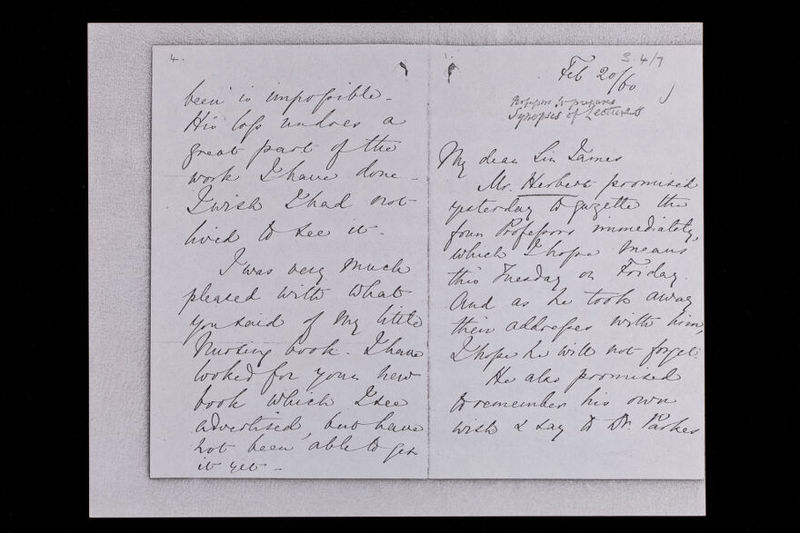 4.
been is impossible -
His loss undoes a
great part of the
work I have done -
I wish I had not
lived to see it -
I was very much
pleased with what
you said of my little
Nursing book. I have
looked for your new
book which I see
advertised, but have
not been able to get
it yet -
4/7
Feb 20/60
Professors to prepare
Synopsis of Lectures
My dear Sir James
Mr. Herbert promised
yesterday to gazette the
four Professors immediately,
which I hope means
this Tuesday or Friday.
And as he took away
their addresses with him,
I hope he will not forget.
He also promised
to remember his own
wish & say to Dr. Parkes